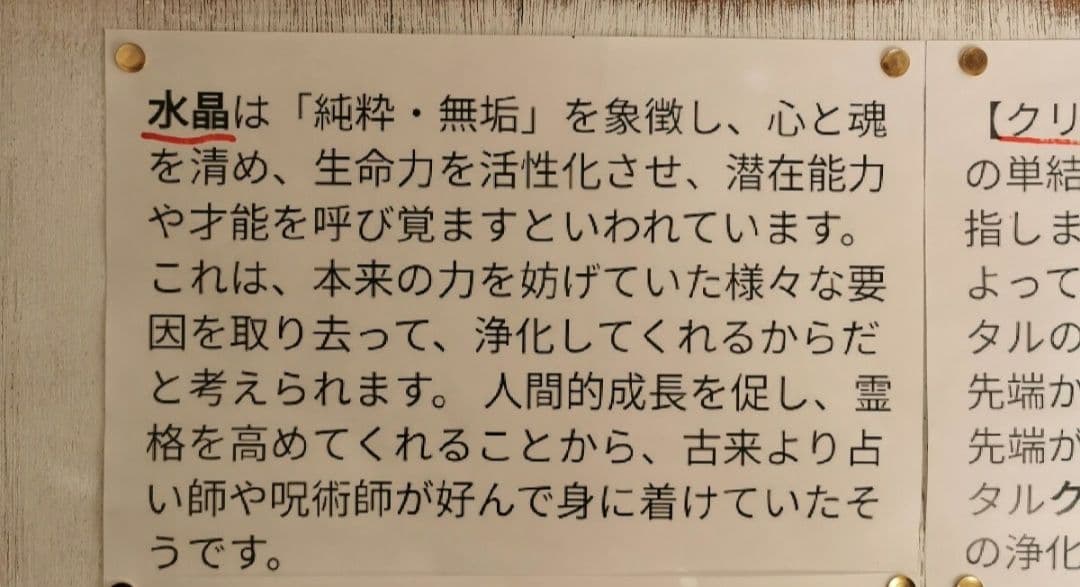 水晶は「純粋・無垢」を象徴し、心と魂
を清め、生命力を活性化させ、潜在能力
や才能を呼び覚ますといわれています。
これは、本来の力を妨げていた様々な要
因を取り去って、浄化してくれるからだ
と考えられます。 人間的成長を促し、霊
格を高めてくれることから、古来より占
い師や呪術師が好んで身に着けていたそ
うです。
【クリ
の単結
指しま
よって
タルの
先端か
先端が
タルク
の浄化